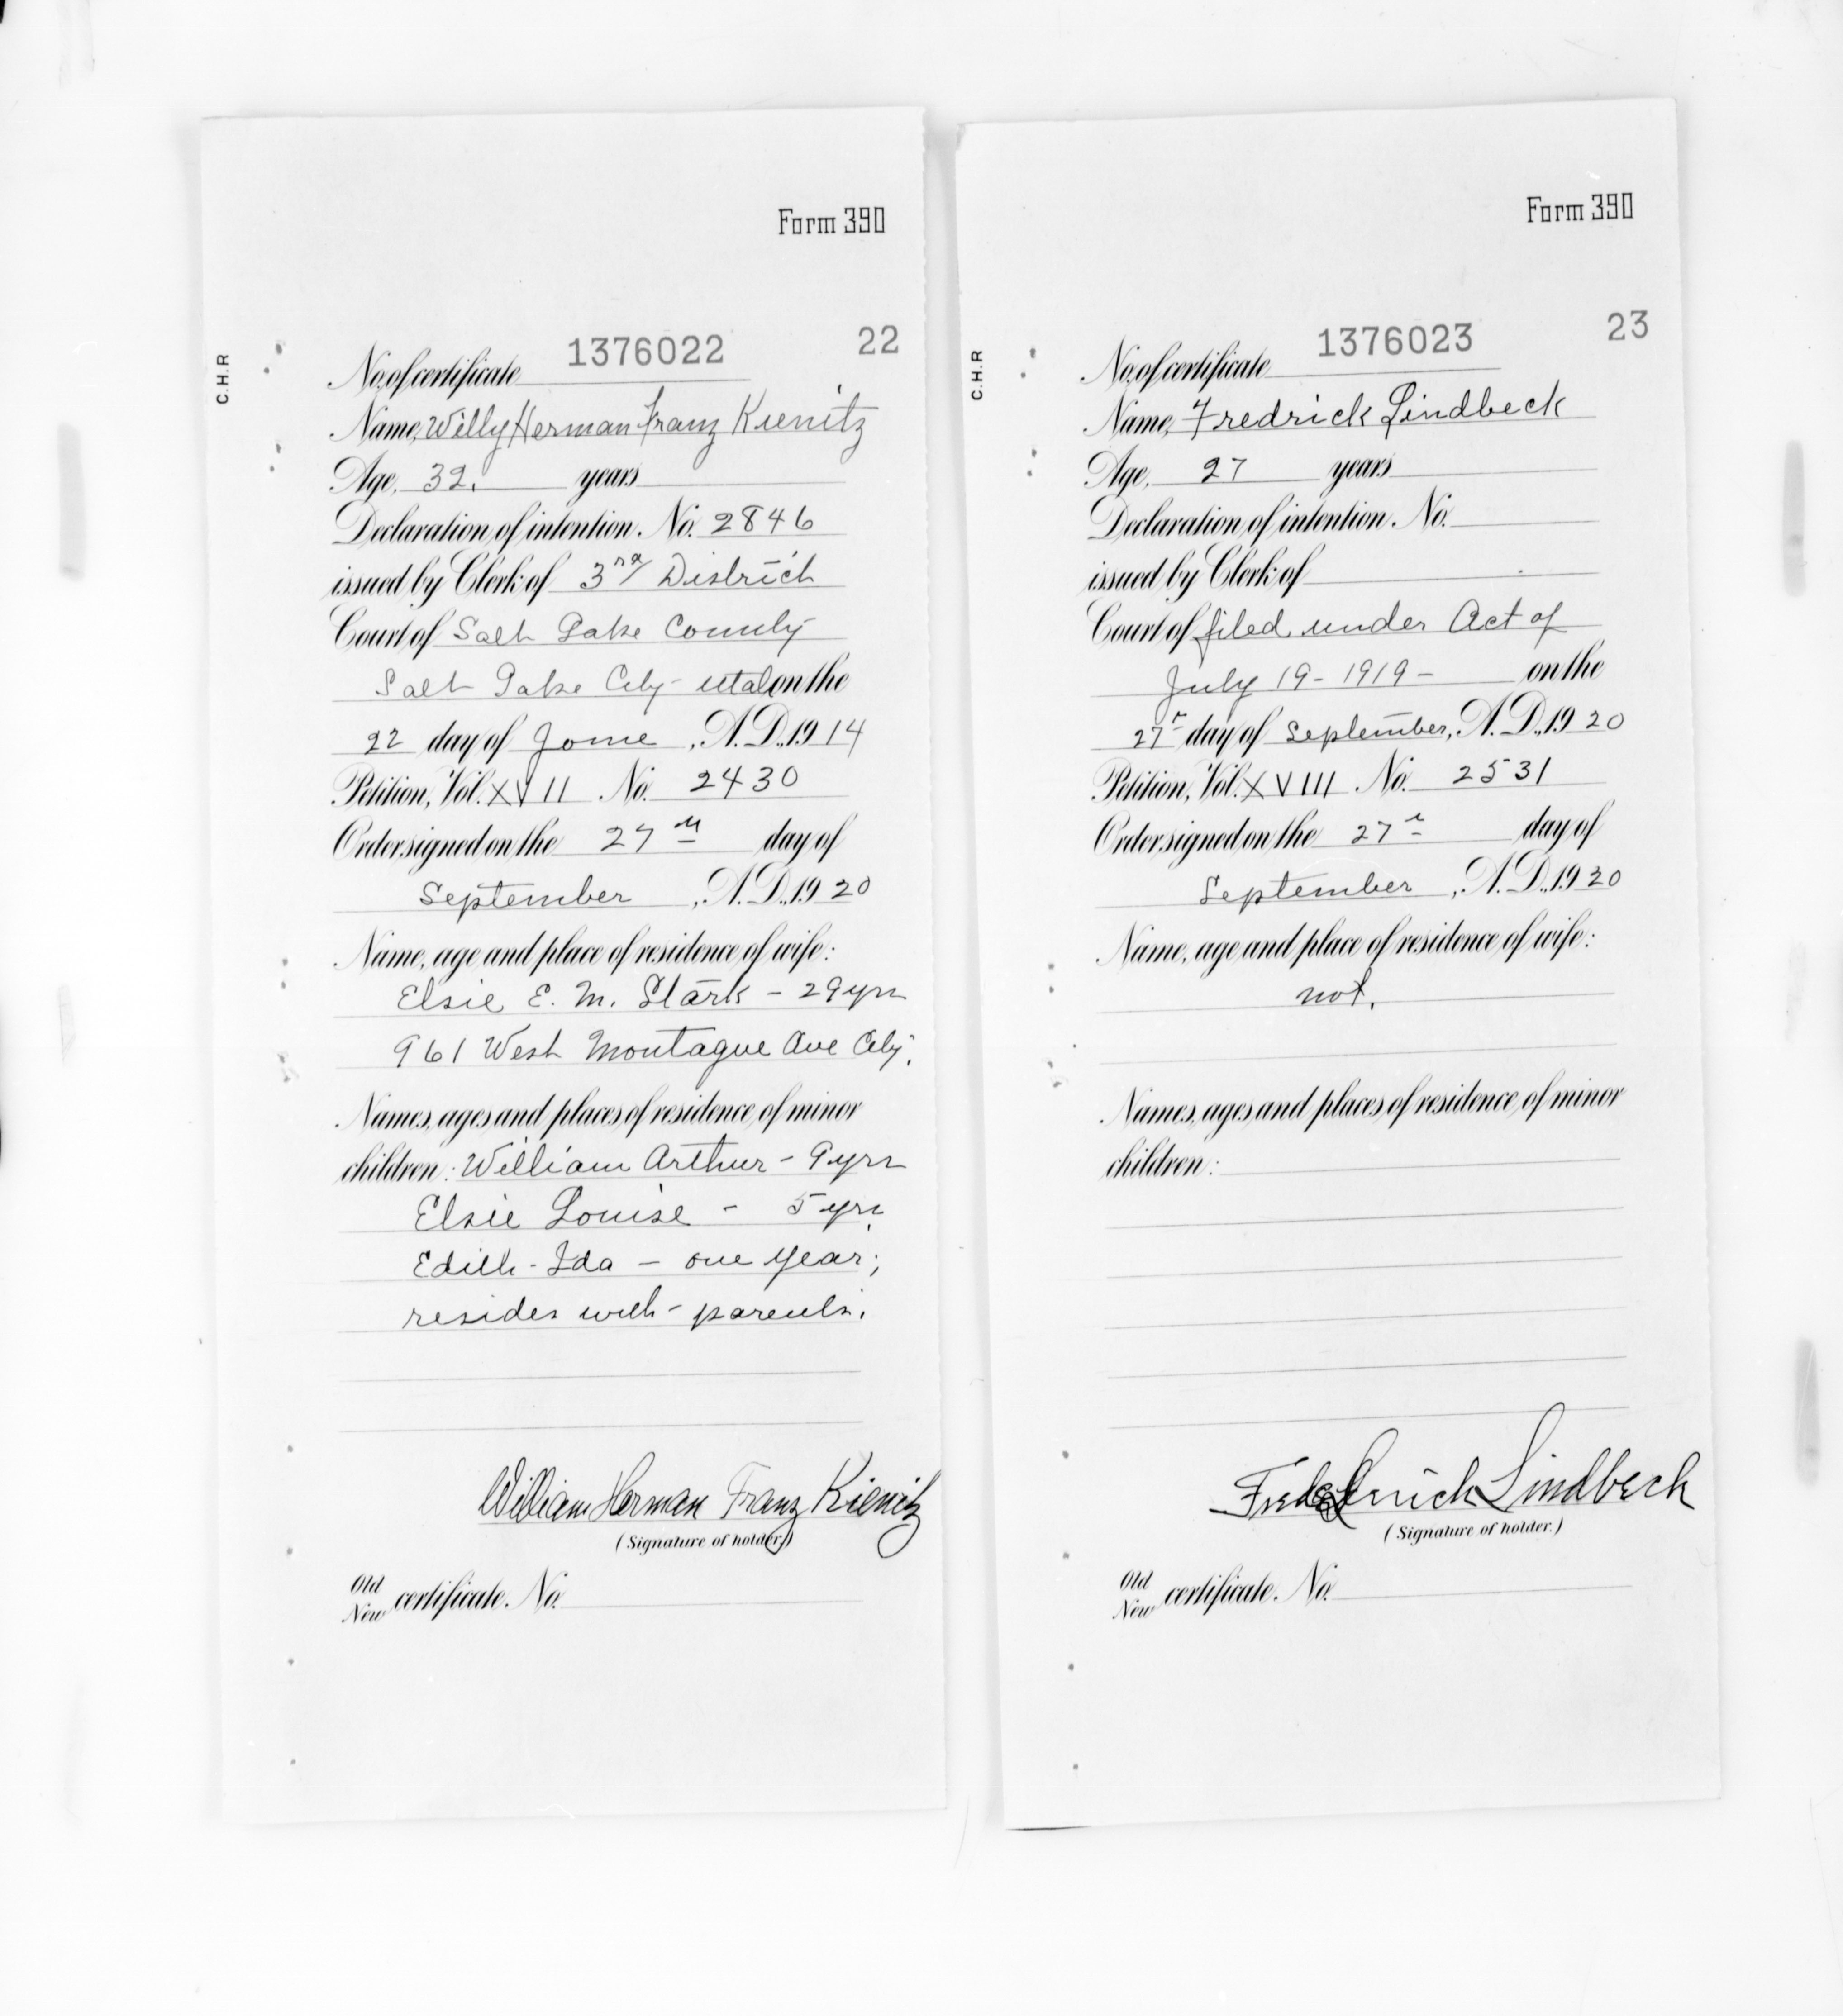 Form 390
C.H.R
1376022 22
No. of certificate
Name, Willy Herman Franz Kienitz
Age, 32. years
Declaration of intention. No. 2846
issued by Clerk of 3rd District
Court of Salt Lake County
Salt Lake City - Utah on the
22 day of June, A.D. 1914
Petition, Vol. XVII No. 2430
Order signed on the 27th day of
September, A.D. 1920
Name, age and place of residence of wife:
Elsie E. M. Stark - 29 yrs
961 West Montague Ave City.
Names, ages and places of residence of minor
children: William Arthur - 9 yrs
Elsie Louise - 5 yrs
Edith - Ida - one year;
resides with - parents.
William Herman Franz Kienitz
(Signature of holder.)
Old
New certificate. No.
Form 390
C.H.R
1376023 23
No. of certificate
Name, Fredrick Lindbeck
Age, 27 years
Declaration of intention. No.
issued by Clerk of
Court of filed under Act of
July 19 - 1919 - on the
27th day of September, A.D. 1920
Petition, Vol. XVIII No. 2531
Order signed on the 27th day of
September, A.D. 1920
Name, age and place of residence of wife:
not.
Names, ages and places of residence of minor
children:
Lindbeck
(Signature of holder.)
Old
New certificate. No.